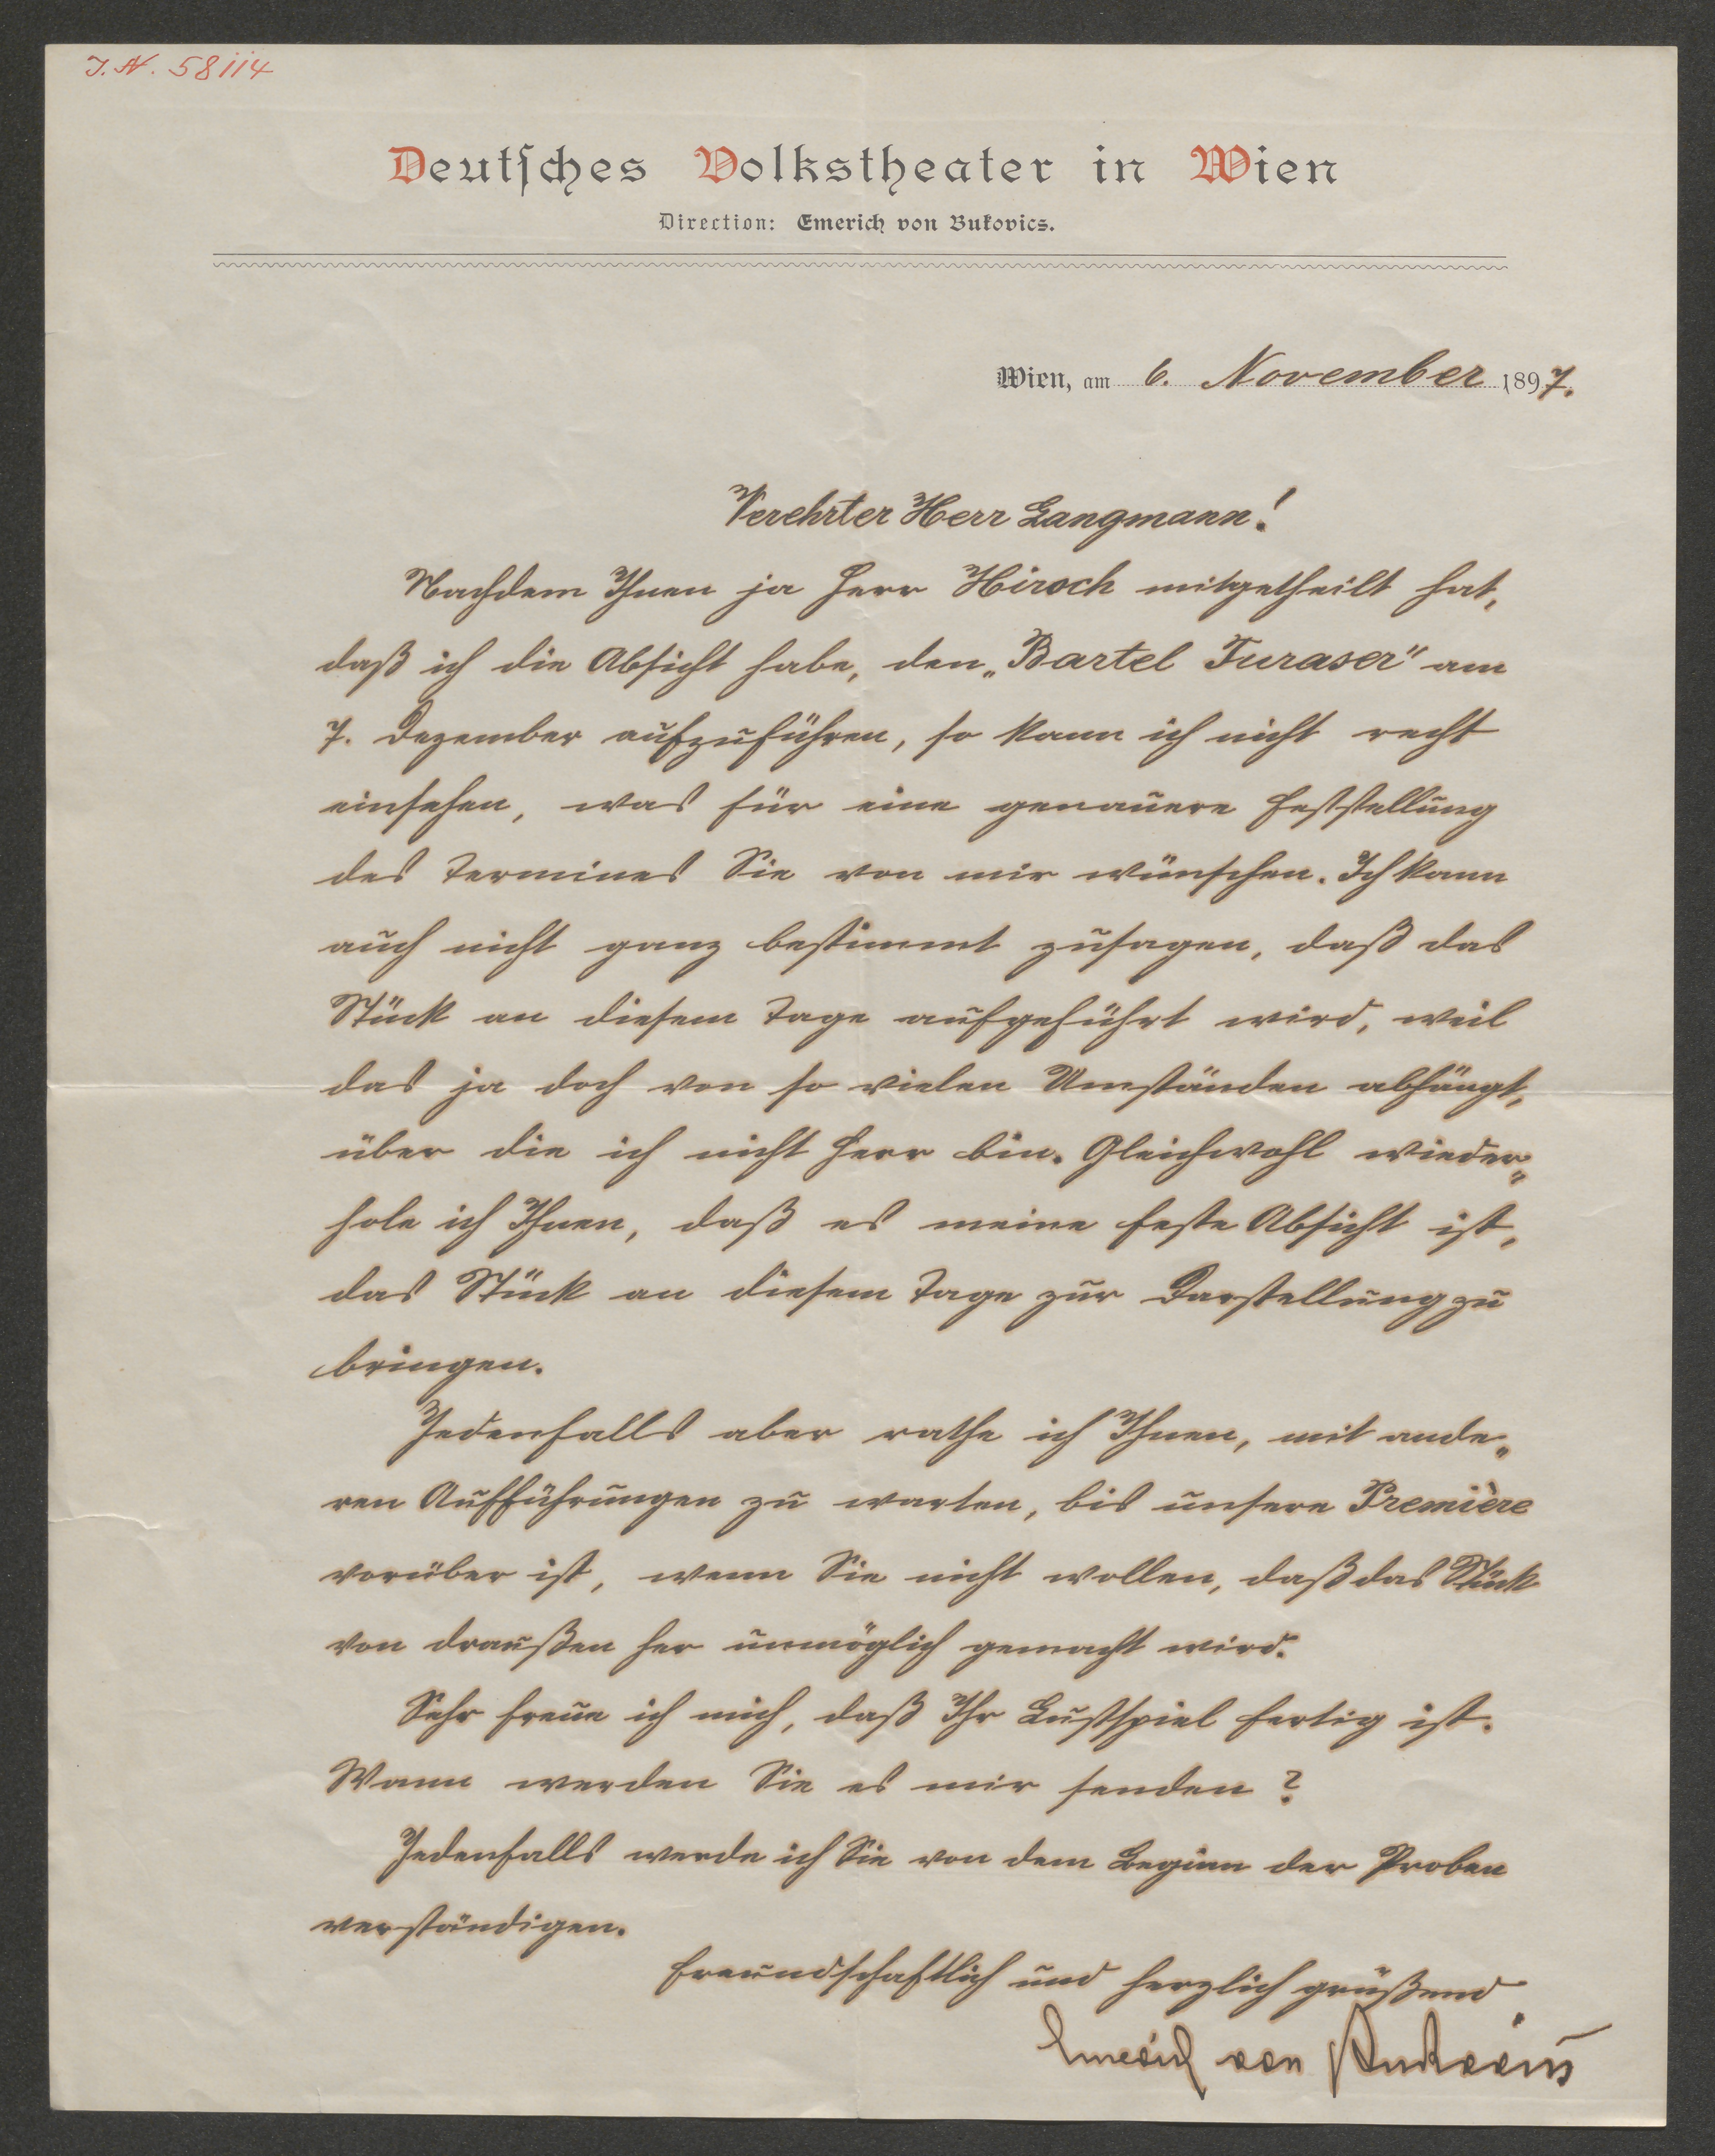 J.N. 58114
Deutſches Volkstheater in Wien
Direction: Emerich von Bukovics.
Wien, am 6. November 1897.
Verehrter Herr Langmann!
Nachdem Ihnen ja Herr Hirsch mitgetheilt hat,
daß ich die Absicht habe, den „Bartel Turaser" am
7. Dezember aufzuführen, so kann ich nicht recht
einsehen, was für eine genauere Feststellung
des Termines Sie von mir wünschen. Ich kann
auch nicht ganz bestimmt zusagen, daß das
Stück an diesem Tage aufgeführt wird, weil
das ja doch von so vielen Umständen abhängt,
über die ich nicht Herr bin. Gleichwohl wieder„
hole ich Ihnen, daß es meine feste Absicht ist,
das Stück an diesem Tage zur Darstellung zu
bringen.
Jedenfalls aber rathe ich Ihnen, mit ande„
ren Aufführungen zu warten, bis unsere Première
vorüber ist, wenn Sie nicht wollen, daß das Stück
von draußen her unmöglich gemacht wird.
Sehr freue ich mich, daß Ihr Lustspiel fertig ist.
Wann werden Sie es mir senden?
Jedenfalls werde ich Sie von dem Beginn der Proben
verständigen.
Freundschaftlich und herzlich grüßend
Emerich von Bukovics